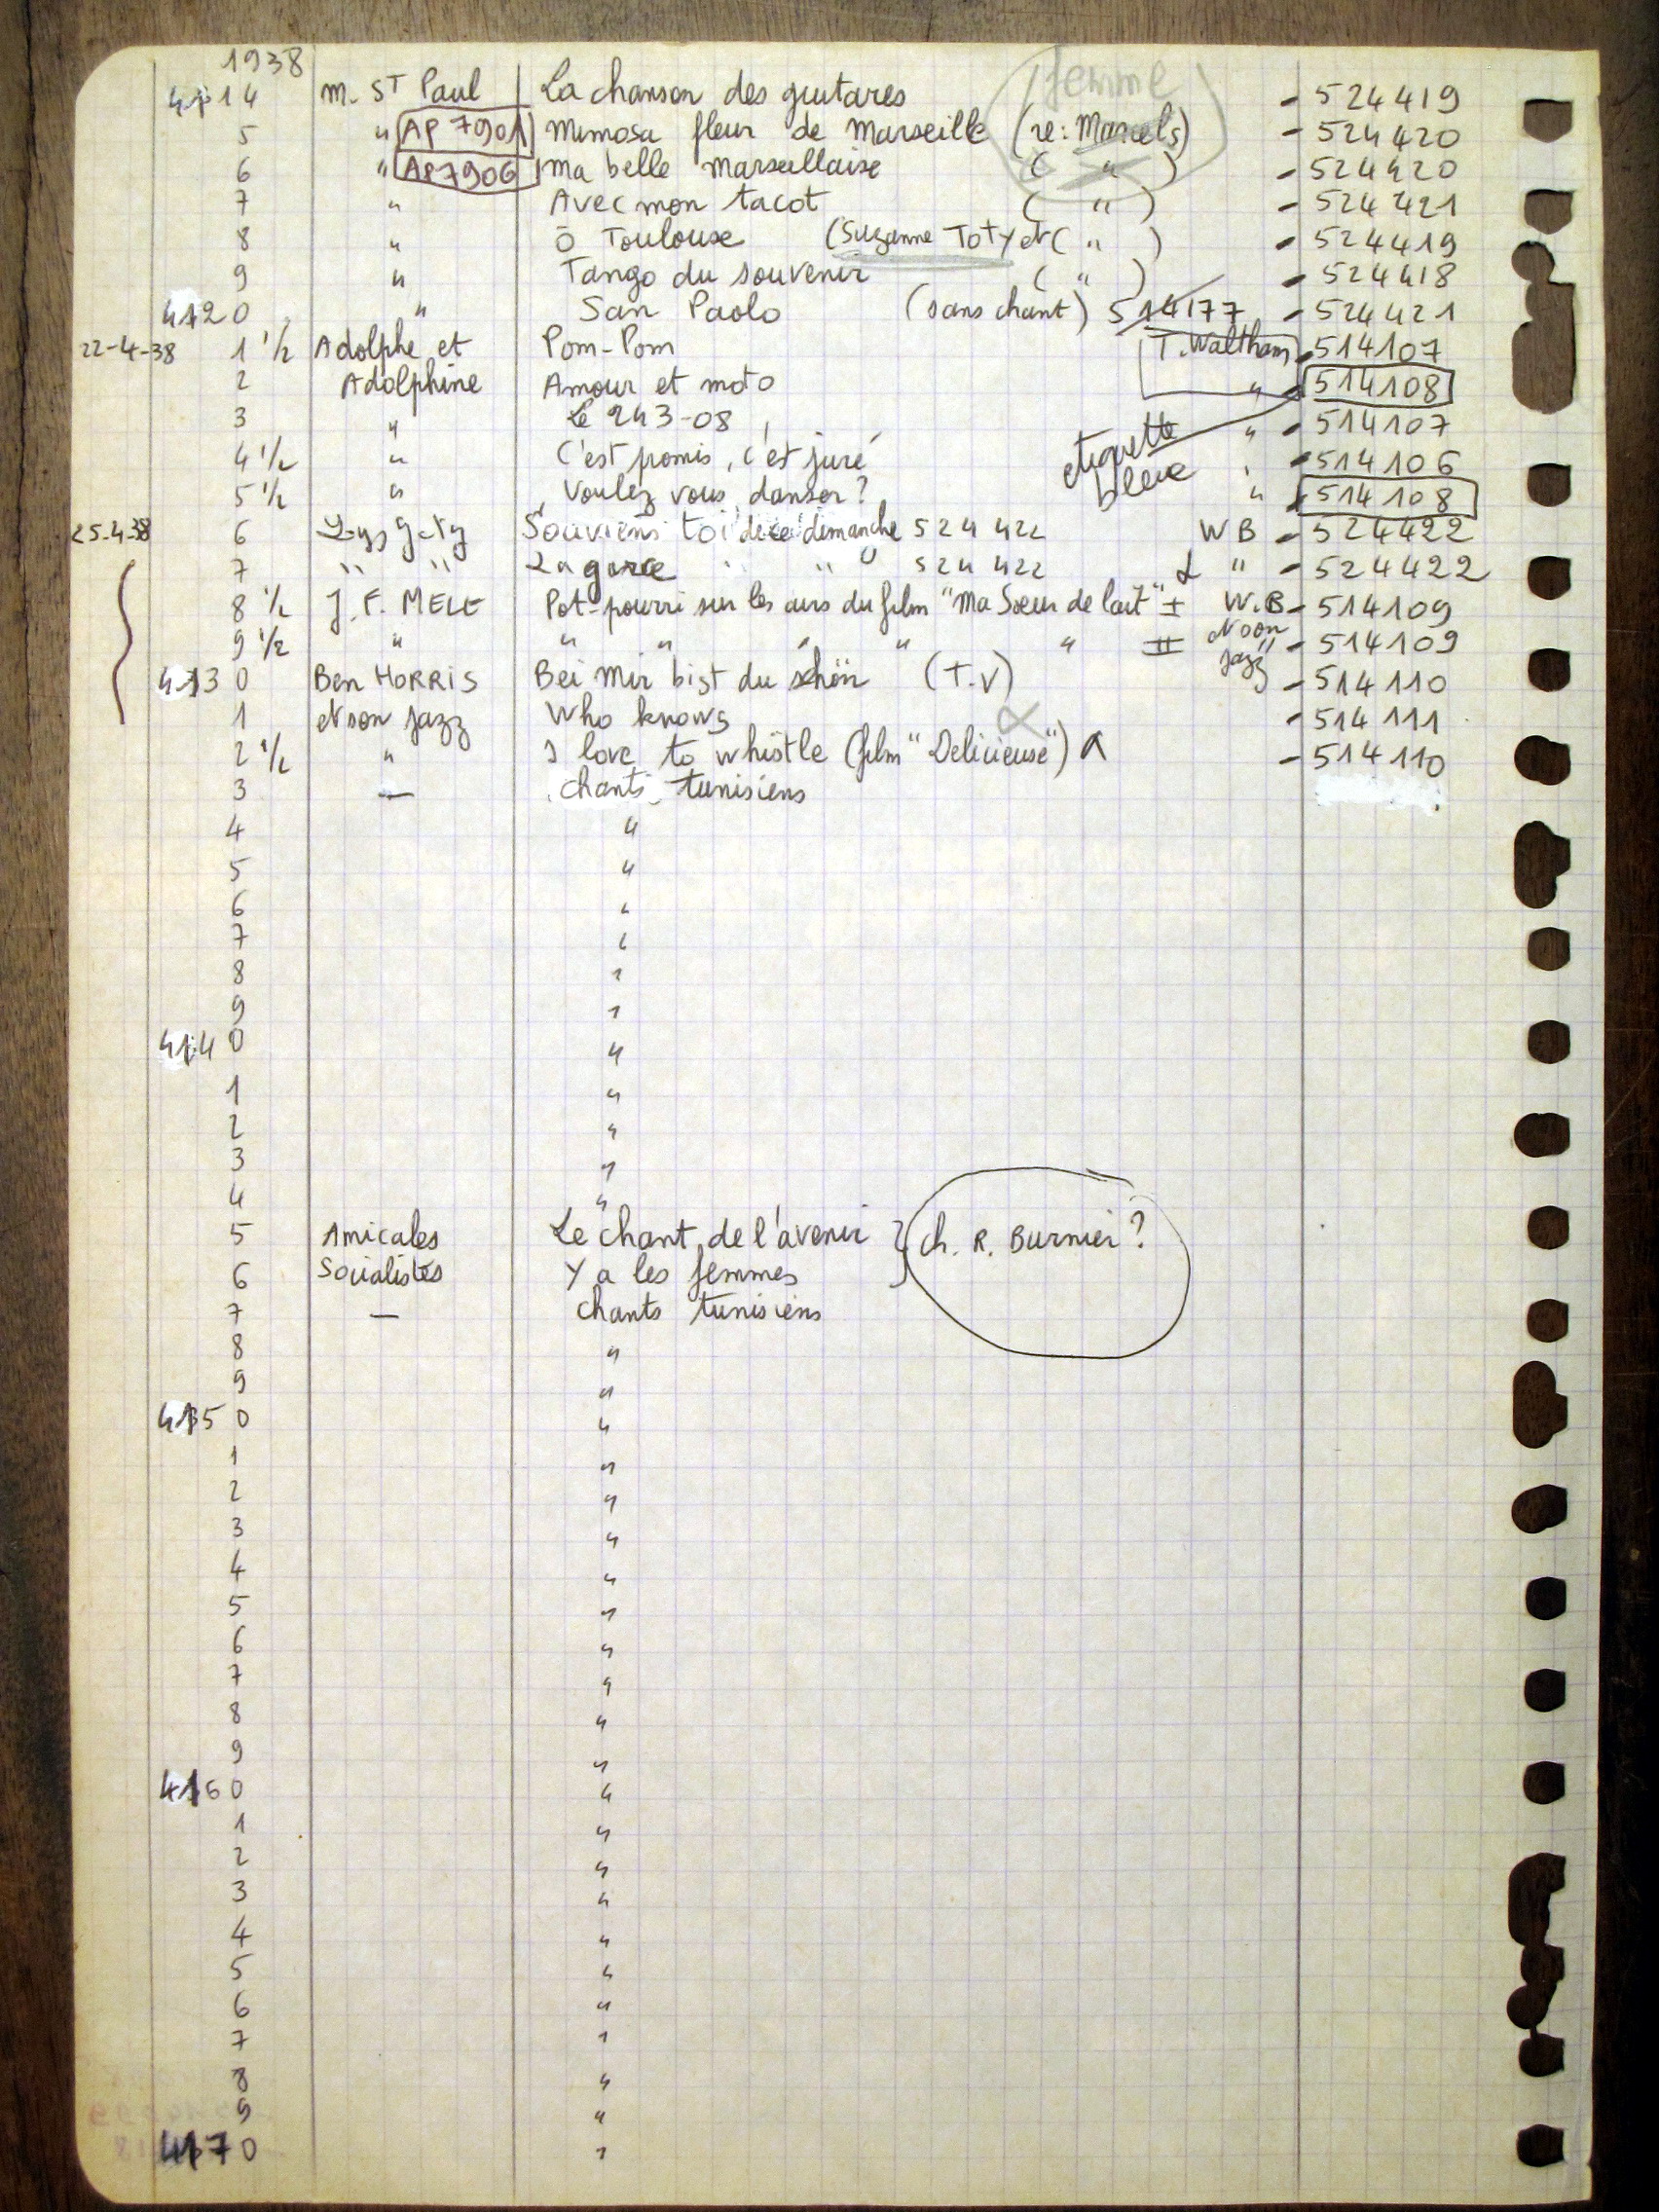 1938
4114 M. ST Paul La chanson des guitares femme - 524419
5 " AP 7901 Mimosa fleur de Marseille (re: Marcels) - 524420
6 " AP 7906 Ma belle marseillaise ( " ) - 524420
7 " Avec mon tacot ( " ) - 524421
8 " Ô Toulouse (Suzanne Toty et ( " ) - 524419
9 " Tango du souvenir ( " ) - 524418
4120 " San Paolo (sans chant) 514177 - 524421
22-4-38 1 1/2 Adolphe et Pom-Pom T. Waltham - 514107
2 Adolphine Amour et moto " - 514108
3 " Le 243-08 " - 514107
4 1/2 " C'est promis, c'est juré etiquette - 514106
5 1/2 " Voulez vous danser? bleue " 514108
25-4-38 6 Lys Gauty Souviens toi de ce dimanche 524 422 WB - 524422
7 " " La garce " " 524 422 " - 524422
8 1/2 J. F. MELE Pot-pourri sur les airs du film "Ma Soeur de lait" I W.B - 514109
9 1/2 " " " " " " II et son jazz - 514109
4130 Ben HORRIS Bei mir bist du schön (T.V) - 514110
1 et son jazz Who knows - 514 111
2 1/2 " I love to whistle (film "Delicieuse") - 514110
3 — chants tunisiens
4 "
5 "
6 "
7 "
8 "
9 "
4140 "
1 "
2 "
3 "
4 "
5 Amicales Le chant de l'avenir } ch. R. Burnier?
6 Socialistes Y a les femmes
7 — chants tunisiens
8 "
9 "
4150 "
1 "
2 "
3 "
4 "
5 "
6 "
7 "
8 "
9 "
4160 "
1 "
2 "
3 "
4 "
5 "
6 "
7 "
8 "
9 "
4170 "